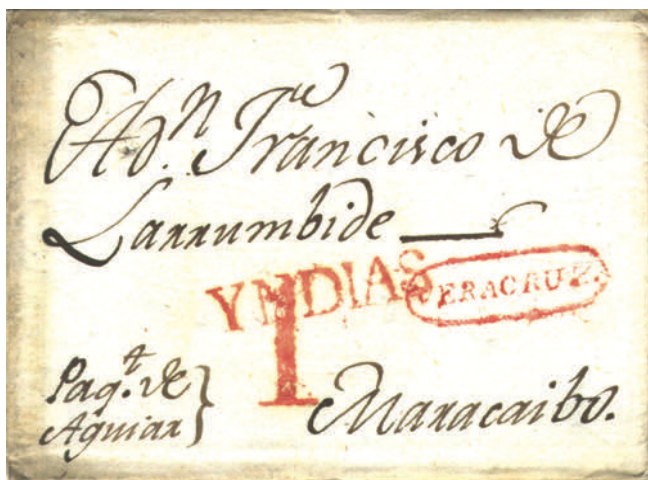 A D.ⁿ Fran.ᶜᵒ cisco de
Larrumbide
YNDIAS
VERACRUZ.
I
Paq.ᵗ de
Aguiar
Maracaibo.